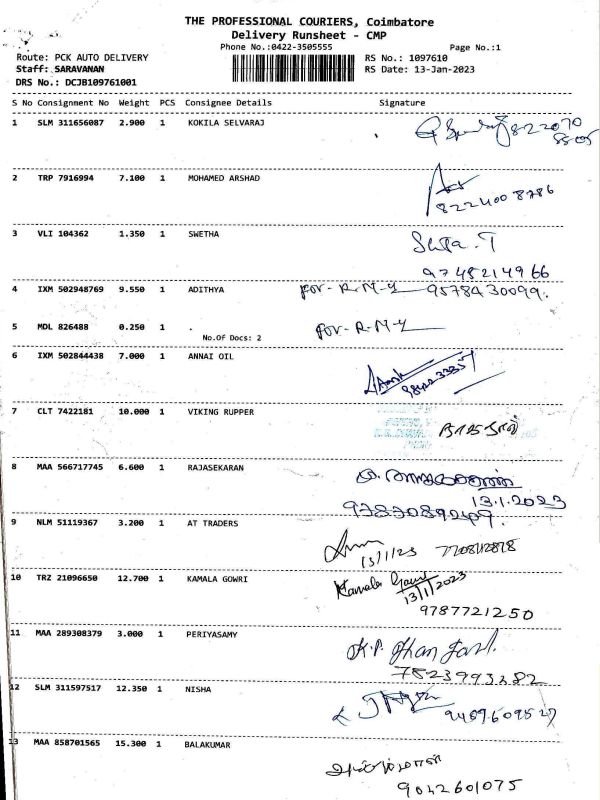 THE PROFESSIONAL COURIERS, Coimbatore
Delivery Runsheet - CMP
Phone No.:0422-3505555 Page No.:1
Route: PCK AUTO DELIVERY RS No.: 1097610
Staff: SARAVANAN RS Date: 13-Jan-2023
DRS No.: DCJB109761001
S No Consignment No Weight PCS Consignee Details Signature
1 SLM 311656087 2.900 1 KOKILA SELVARAJ
2 TRP 7916994 7.100 1 MOHAMED ARSHAD
8224008786
3 VLI 104362 1.350 1 SWETHA
9748214966
4 IXM 502948769 9.550 1 ADITHYA For-R-M-Y 9578430099.
5 MDL 826488 0.250 1 . For-R-M-Y
No.Of Docs: 2
6 IXM 502844438 7.000 1 ANNAI OIL
7 CLT 7422181 10.000 1 VIKING RUPPER
8 MAA 566717745 6.600 1 RAJASEKARAN
13.1.2023
9 NLM 51119367 3.200 1 AT TRADERS
13/1/23
10 TRZ 21096650 12.700 1 KAMALA GOWRI Kamala Gowri
13/1/2023
9787721250
11 MAA 289308379 3.000 1 PERIYASAMY
7523993282
12 SLM 311597517 12.350 1 NISHA
9489609527
13 MAA 858701565 15.300 1 BALAKUMAR
9042601075